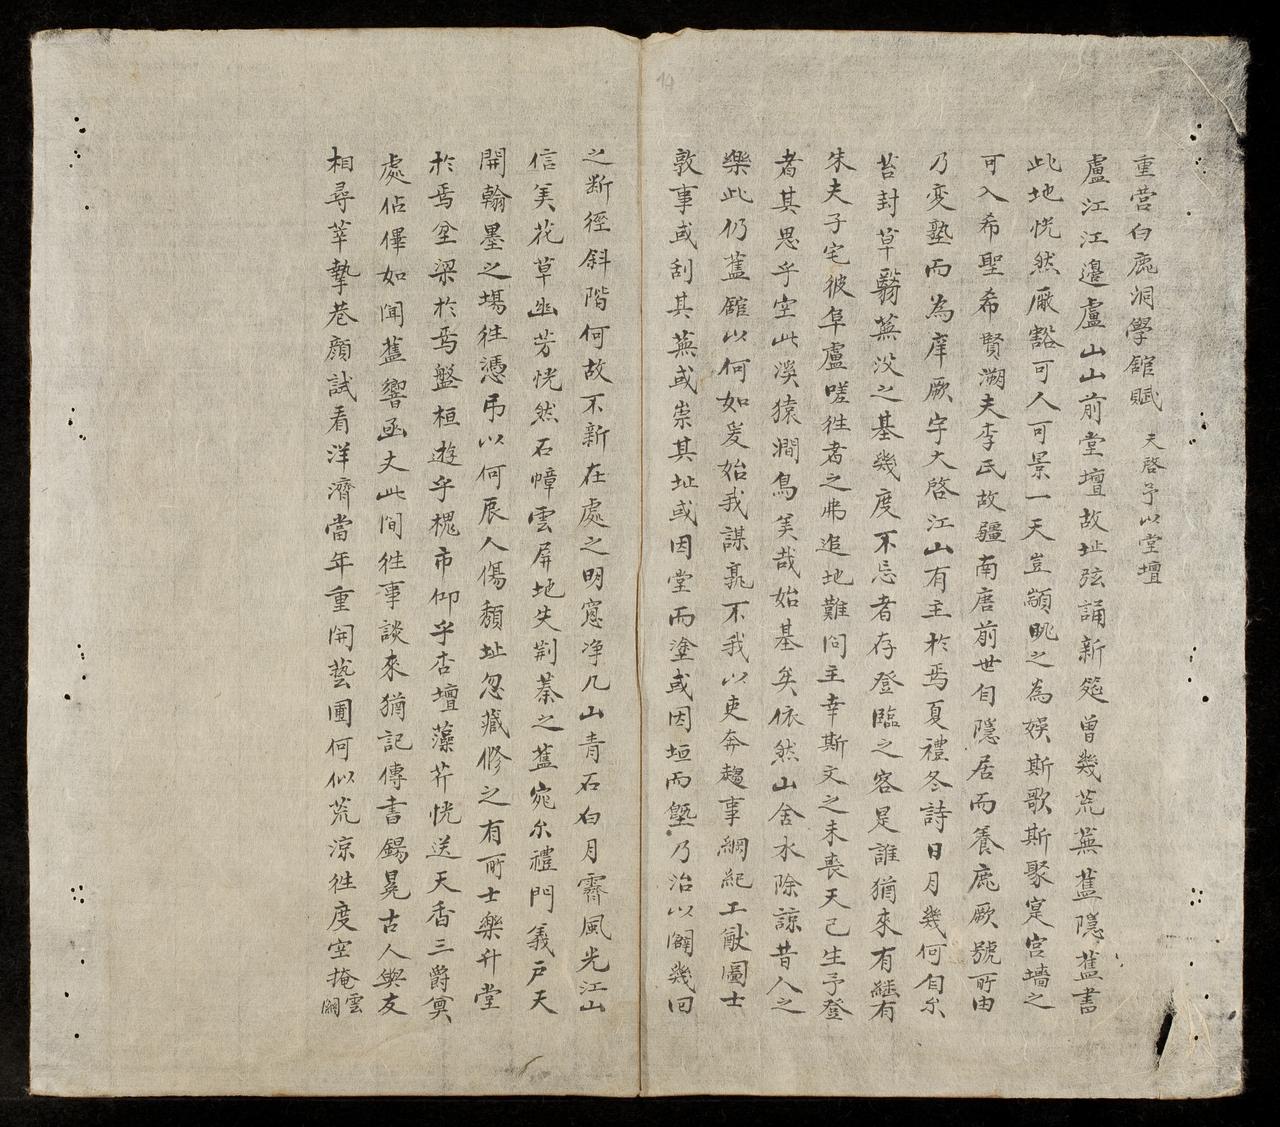 重営白鹿洞學館賦 天啓予以堂壇
盧江江邊盧山山前堂壇故址弦誦新筵曾幾荒蕪舊隱舊書
此地恍然厰豁可人可景一天豈顓眺之為娯斯歌斯聚寔宮墻之
可入希聖希賢溯夫李氏故疆南唐前世自隱居而養鹿厥號所由
乃変塾而為庠厥宇大啓江山有主於焉夏禮冬詩日月幾何自尓
苔封草翳蕪没之基幾度不忘者存登臨之客是誰猶來有継有
朱夫子宅彼阜盧嗟徃者之弗追地難问主幸斯文之未喪天已生予登
者其思乎空此溪猿澗鳥美哉始基矣依然山舍水除諒昔人之
樂此仍舊館以何如爰始我謀龜不我以吏奔趨事綱紀工猷圖士
敦事或刮其蕪或崇其址或因堂而塗或因垣而墍乃治以闢幾囘
之断徑斜階何故不新在處之明窓净几山青石白月霽風光江山
信美花草幽芳恍然石幛雲屏地失荆蓁之舊宛尓禮門義户天
開翰墨之塲徃憑吊以何辰人傷頽址忽藏修之有所士樂升堂
於焉坌梁於焉盤桓遊乎槐市仰乎杏壇藻芹恍送天香三爵奠
處佔俾如闻舊響函丈此间徃事談來猶記傳書錫晃古人與友
相尋莘摯巷顔試看洋濟當年重開藝圃何似荒凉徃度空掩雲關